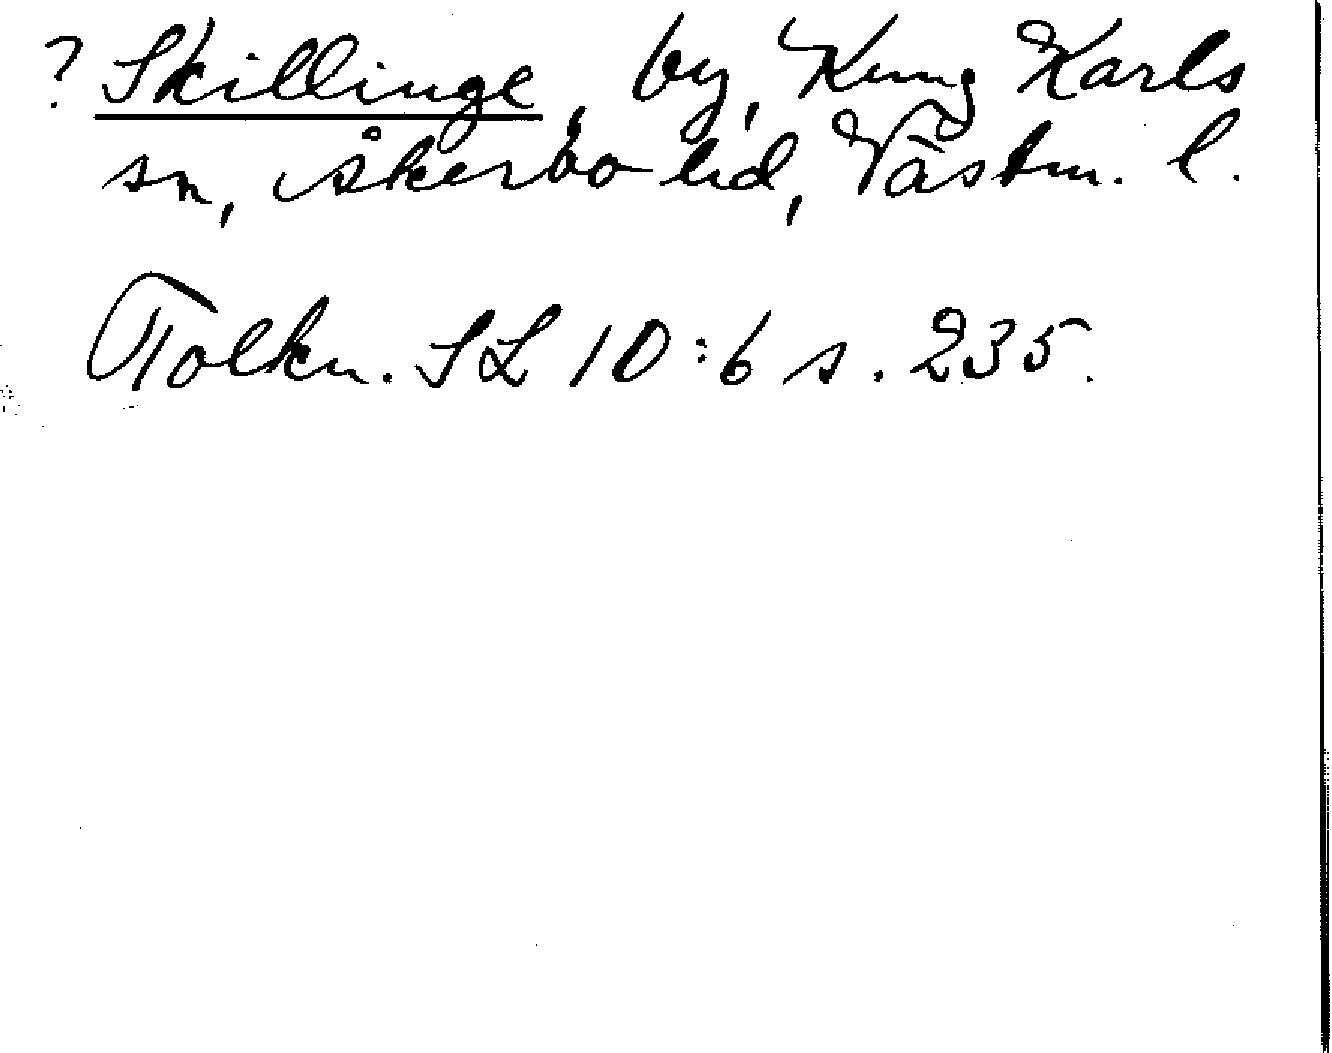 ? Skillinge, by, Kung Karls
sn, Åkerbo hd, Västm. l.
Tolkn. SL 10:6 s. 235.